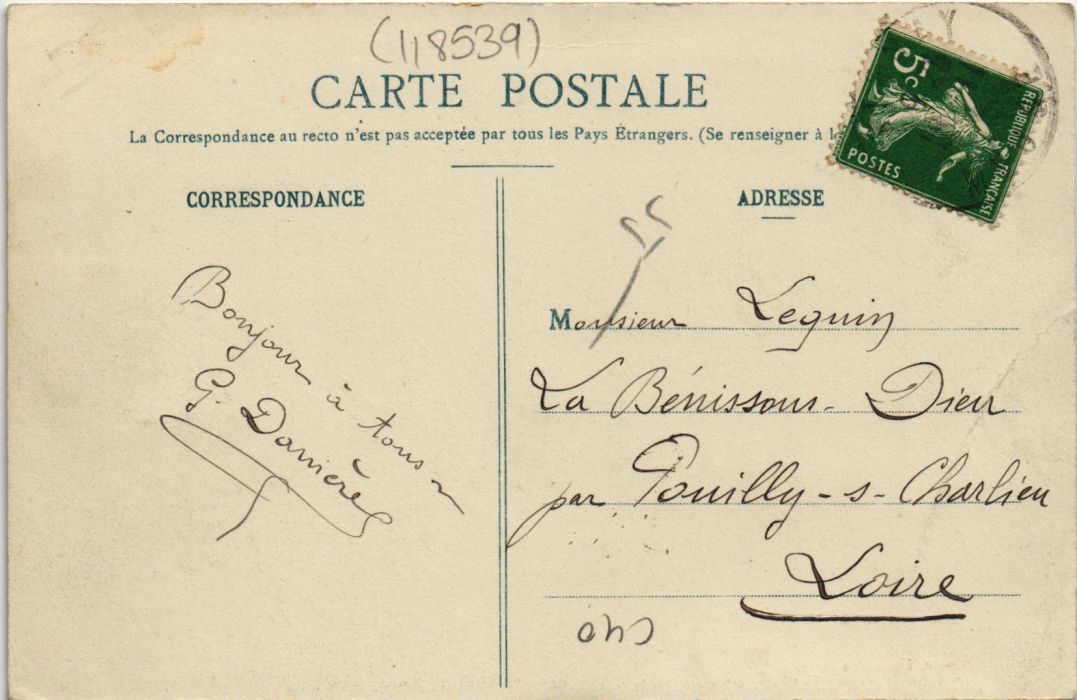 (118539)
CARTE POSTALE
La Correspondance au recto n'est pas acceptée par tous les Pays Étrangers. (Se renseigner à
CORRESPONDANCE
Bonjour à tous
G. Danière
ADRESSE
Monsieur Leguin
La Bénissons-Dieu
par Pouilly-s-Charlieu
Loire
5c
POSTES
REPUBLIQUE FRANÇAISE